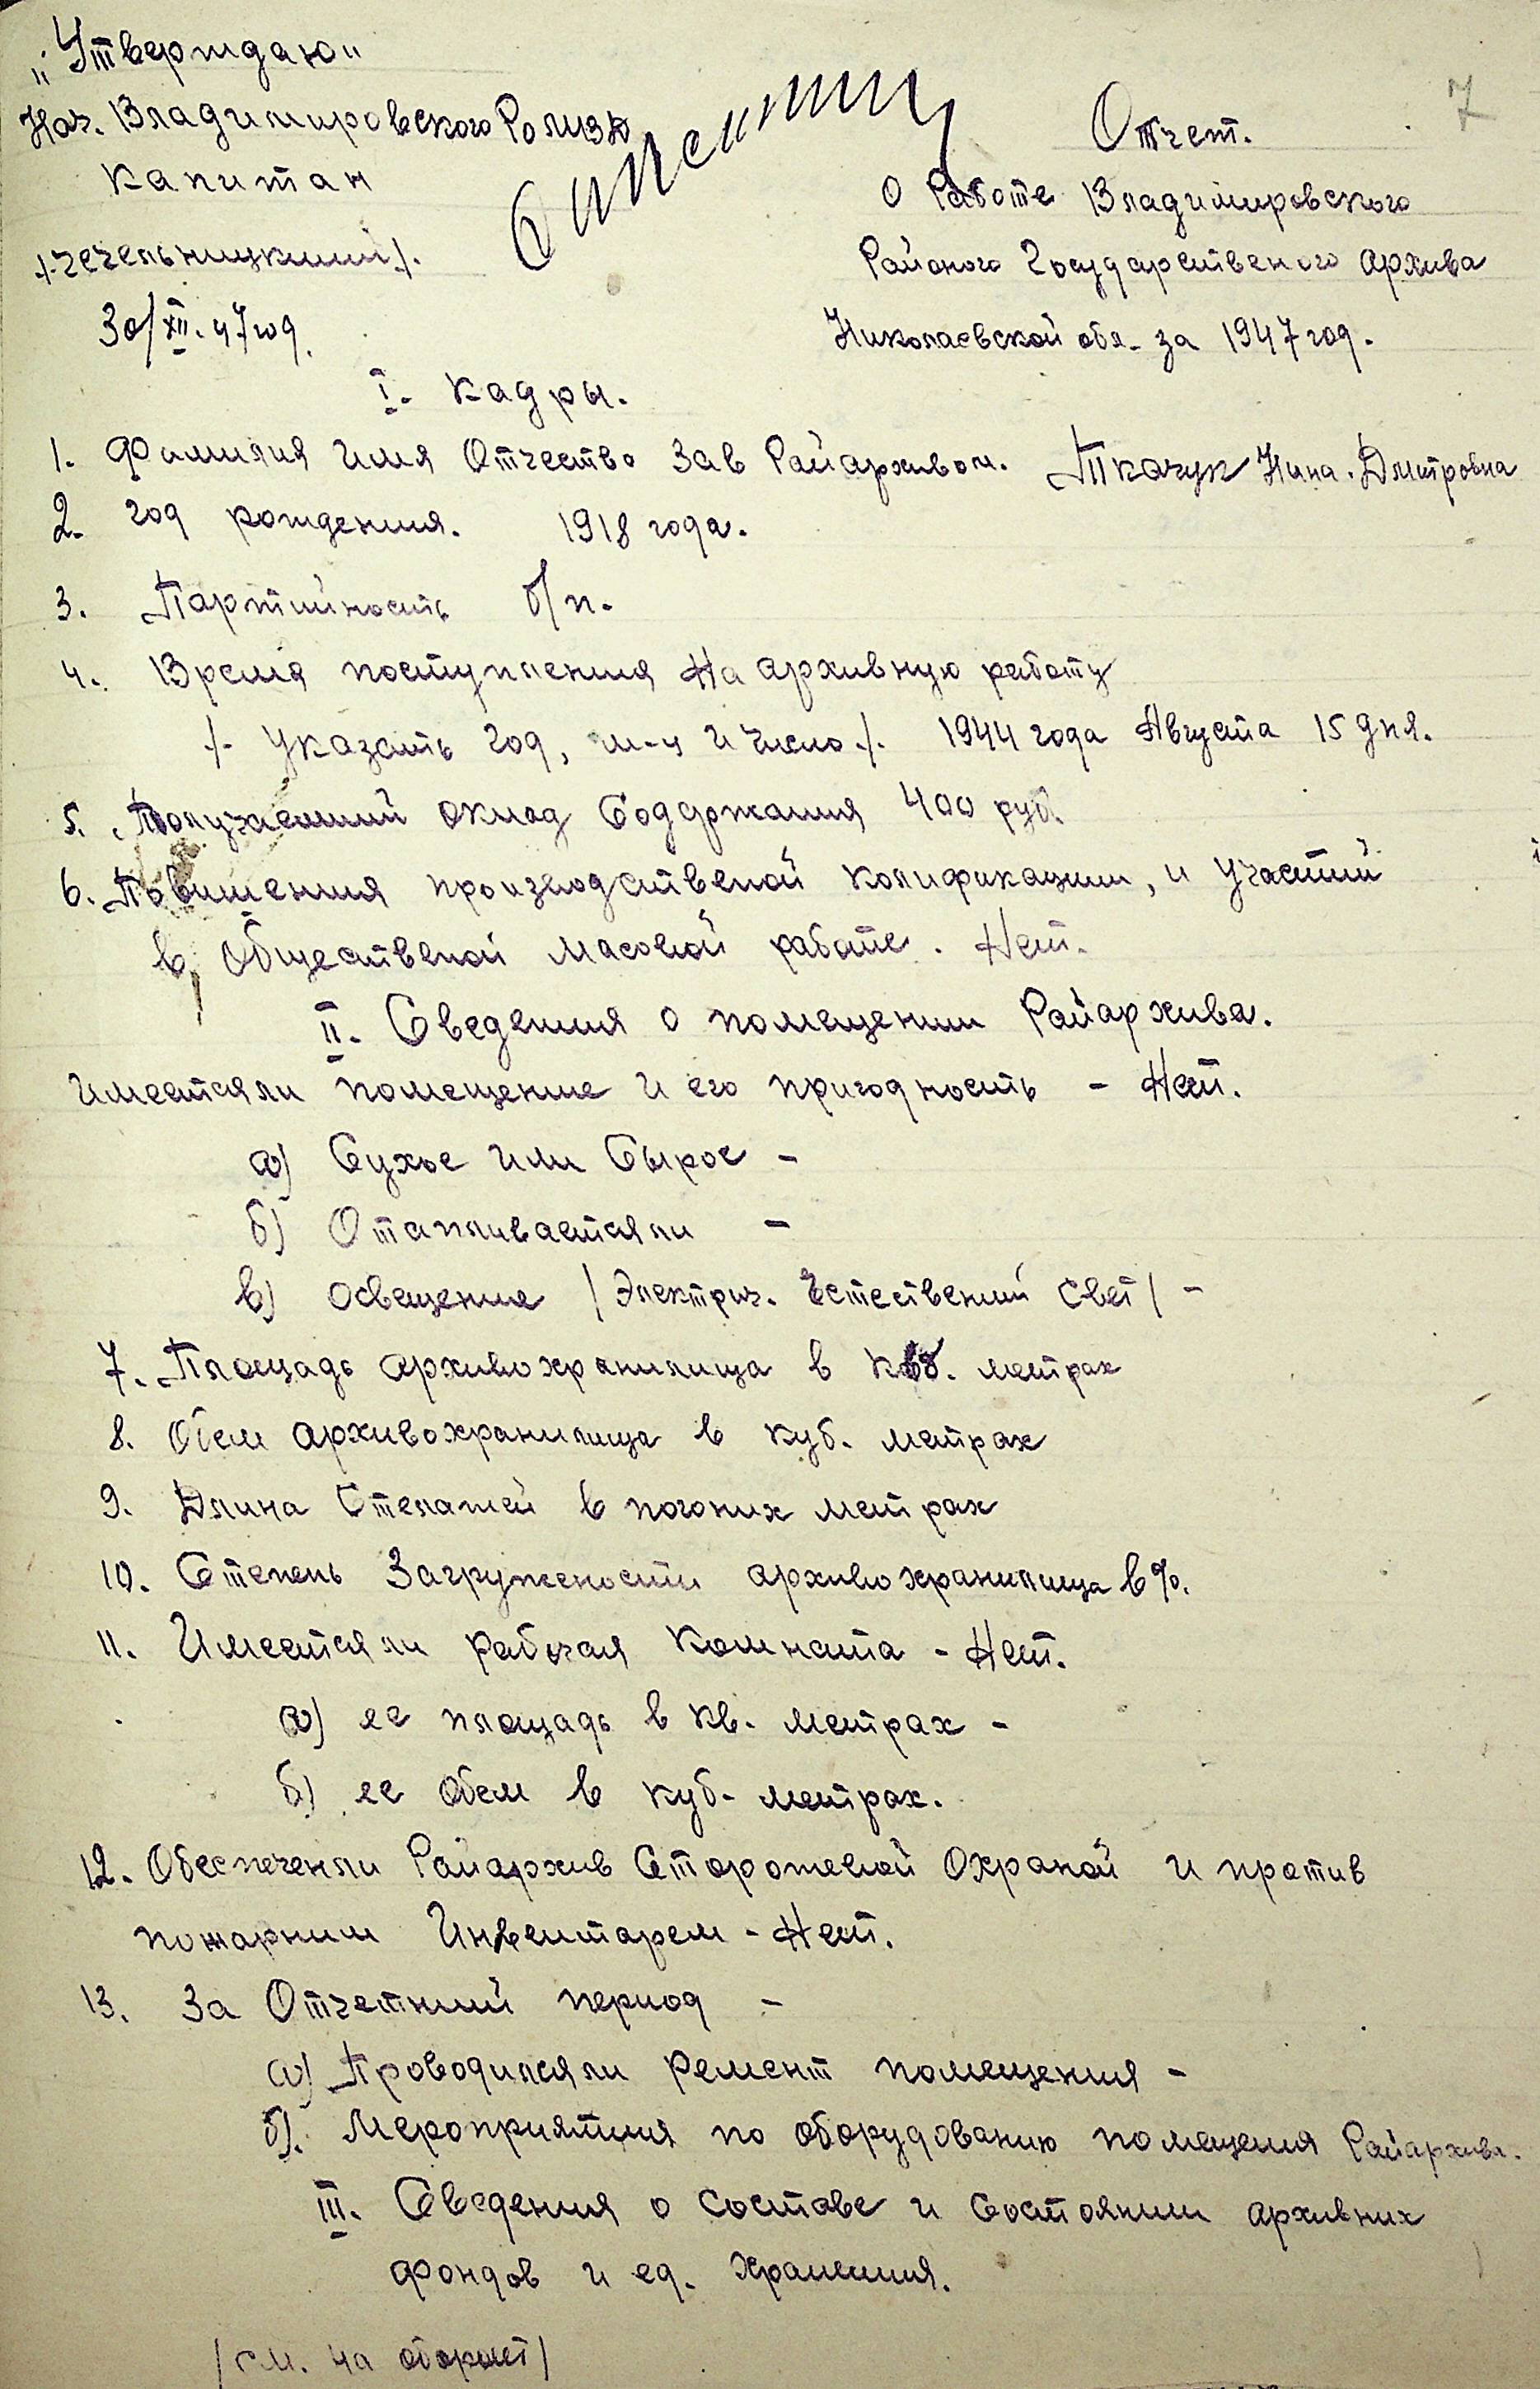 „Утверждаю"
Нач. Владимировского
Капитан
/-чечельницкий/.
30/XII. 47 год.
7
Отчет.
О Работе Владимировского
Районого Государственого архива
Николаевской обл. за 1947 год.
I. Кадры.
1. Фамилия Имя Отчество Зав Райархивом. Ткачук Нина. Дмитровна
2. год рождения. 1918 года.
3. Партийность б/п.
4. Время поступления На архивную работу
/- Указать год, м-ц и число./. 1944 года Августа 15 дня.
5. Получаемий оклад Содержания 400 руб.
6. Повишения производственой колификации, и участий
в Общественой масовой работе. Нет.
II. Сведения о помещении Райархива.
Имеетсяли помещение и его пригодность - Нет.
а) Сухое или Сырое -
б) Отапливаетсяли -
в) освещение /Электрич. Естествений свет/ -
7. Площадь архивохранилища в кв. метрах
8. Обем архивохранилища в куб. метрах
9. Длина Стелажей в погоних метрах
10. Степень Загружености архивохранилища в %.
11. Имеетсяли рабочая комната - Нет.
а) ее площадь в кв. метрах -
б) ее обем в куб. метрах.
12. Обеспеченли Райархив Сторожевой Охраной и против
пожарним Инвентарем - Нет.
13. За Отчетний период -
а) Проводилсяли Ремонт помещения -
б). Мероприятия по оборудованию помещения Райархива.
III. Сведения о составе и Состоянии архивних
фондов и ед. Хранения.
/см. на обороте/